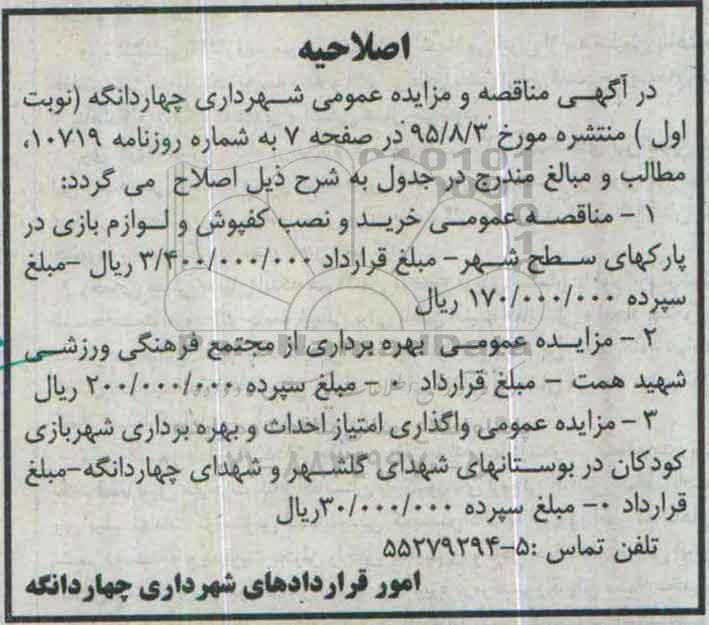 اصلاحیه
در آگهی مناقصه و مزایده عمومی شهرداری چهاردانگه (نوبت
اول ) منتشره مورخ ۹۵/۸/۳ در صفحه ۷ به شماره روزنامه ۱۰۷۱۹،
مطالب و مبالغ مندرج در جدول به شرح ذیل اصلاح می گردد:
۱ - مناقصه عمومی خرید و نصب کفپوش و لوازم بازی در
پارکهای سطح شهر- مبلغ قرارداد ۳/۴۰۰/۰۰۰/۰۰۰ ریال -مبلغ
سپرده ۱۷۰/۰۰۰/۰۰۰ ریال
۲ - مزایده عمومی بهره برداری از مجتمع فرهنگی ورزشی
شهید همت - مبلغ قرارداد ۰ - مبلغ سپرده ۲۰۰/۰۰۰/۰۰۰ ریال
۳ - مزایده عمومی واگذاری امتیاز احداث و بهره برداری شهربازی
کودکان در بوستانهای شهدای گلشهر و شهدای چهاردانگه-مبلغ
قرارداد ۰- مبلغ سپرده ۳۰/۰۰۰/۰۰۰ریال
تلفن تماس :۵-۵۵۲۷۹۲۹۴
امور قراردادهای شهرداری چهاردانگه